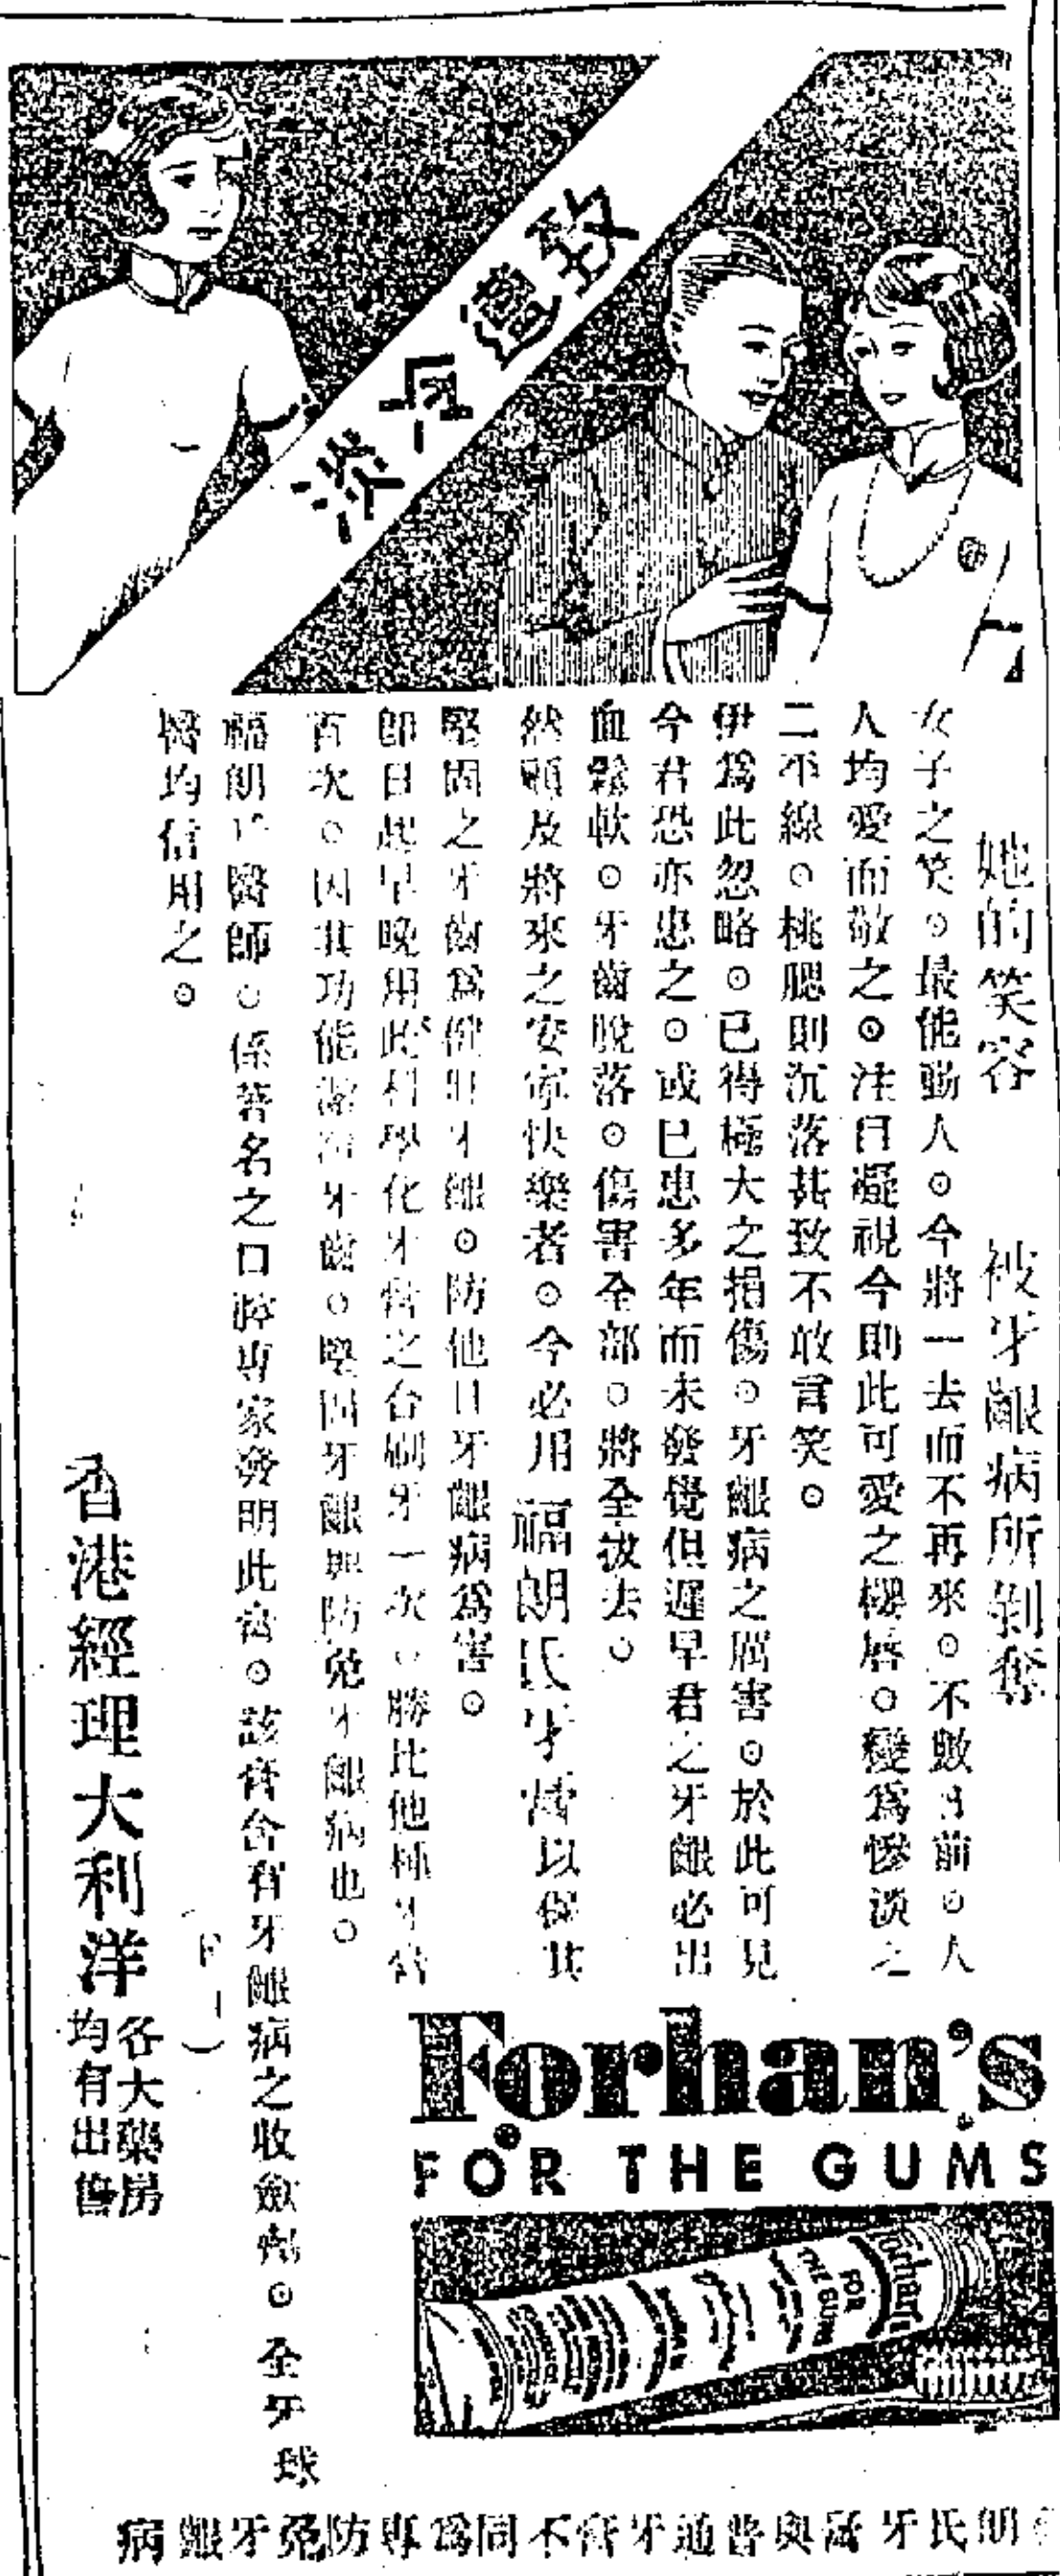 致遭冷淡
她的笑容 被牙齦病所剝奪
女子之笑。最能動人。今將一去而不再來。不數日前。人
人均愛而敬之。注目凝視今則此可愛之櫻唇。變爲慘淡之
二不線。桃腮則沉落甚致不敢言笑。
伊爲此忽略。已得極大之損傷。牙齦病之厲害。於此可見
今君恐亦患之。或已患多年而未發覺但遲早君之牙齦必出
血鬆軟。牙齒脫落。傷害全部。將全拔去。
然顧及將來之安寧快樂者。今必用福朗氏牙膏以保其
堅固之牙齒爲健壯牙齦。防他日牙齦病爲害。
即日起早晚用此科學化牙膏之台刷牙一次。勝比他種牙膏
百次。因其功能潔淨牙齒。堅固牙齦與防免牙齦病也。
福朗氏醫師。係著名之口腔專家發明此膏。該膏含有牙齦病之收斂劑。全球牙
醫均信用之。
香港經理大利洋
各大藥房
均有出售
Forhan's
FOR THE GUMS
Forhan's
FOR
THE GUMS
朗氏牙膏與普通牙膏不同爲專防免牙齦病